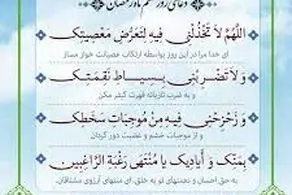 دعای روز ششم ماه رمضان
اللَّهُمَّ لاَ تَخْذُلْنِی فِیهِ لِتَعَرُّضِ مَعْصِیَتِکَ
ای خدا مرا در این روز بواسطه ارتکاب عصیانت خوار مساز
وَ لاَ تَضْرِبْنِی بِسِیَاطِ نَقِمَتِکَ
و به ضرب تازیانه قهرت کشر مکن
وَ زَحْزِحْنِی فِیهِ مِنْ مُوجِبَاتِ سَخَطِکَ
و از موجبات خشم و غضبت دور گردان
بِمَنِّکَ وَ أَیَادِیکَ یَا مُنْتَهَى رَغْبَةِ الرَّاغِبِینَ
به حق احسان و نعمتهای تو به خلق، ای منتهای آرزوی مشتاقان.